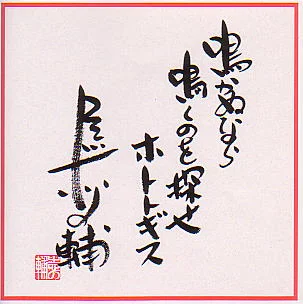 鳴かぬなら
鳴くのを探せ
ホトトギス
輔